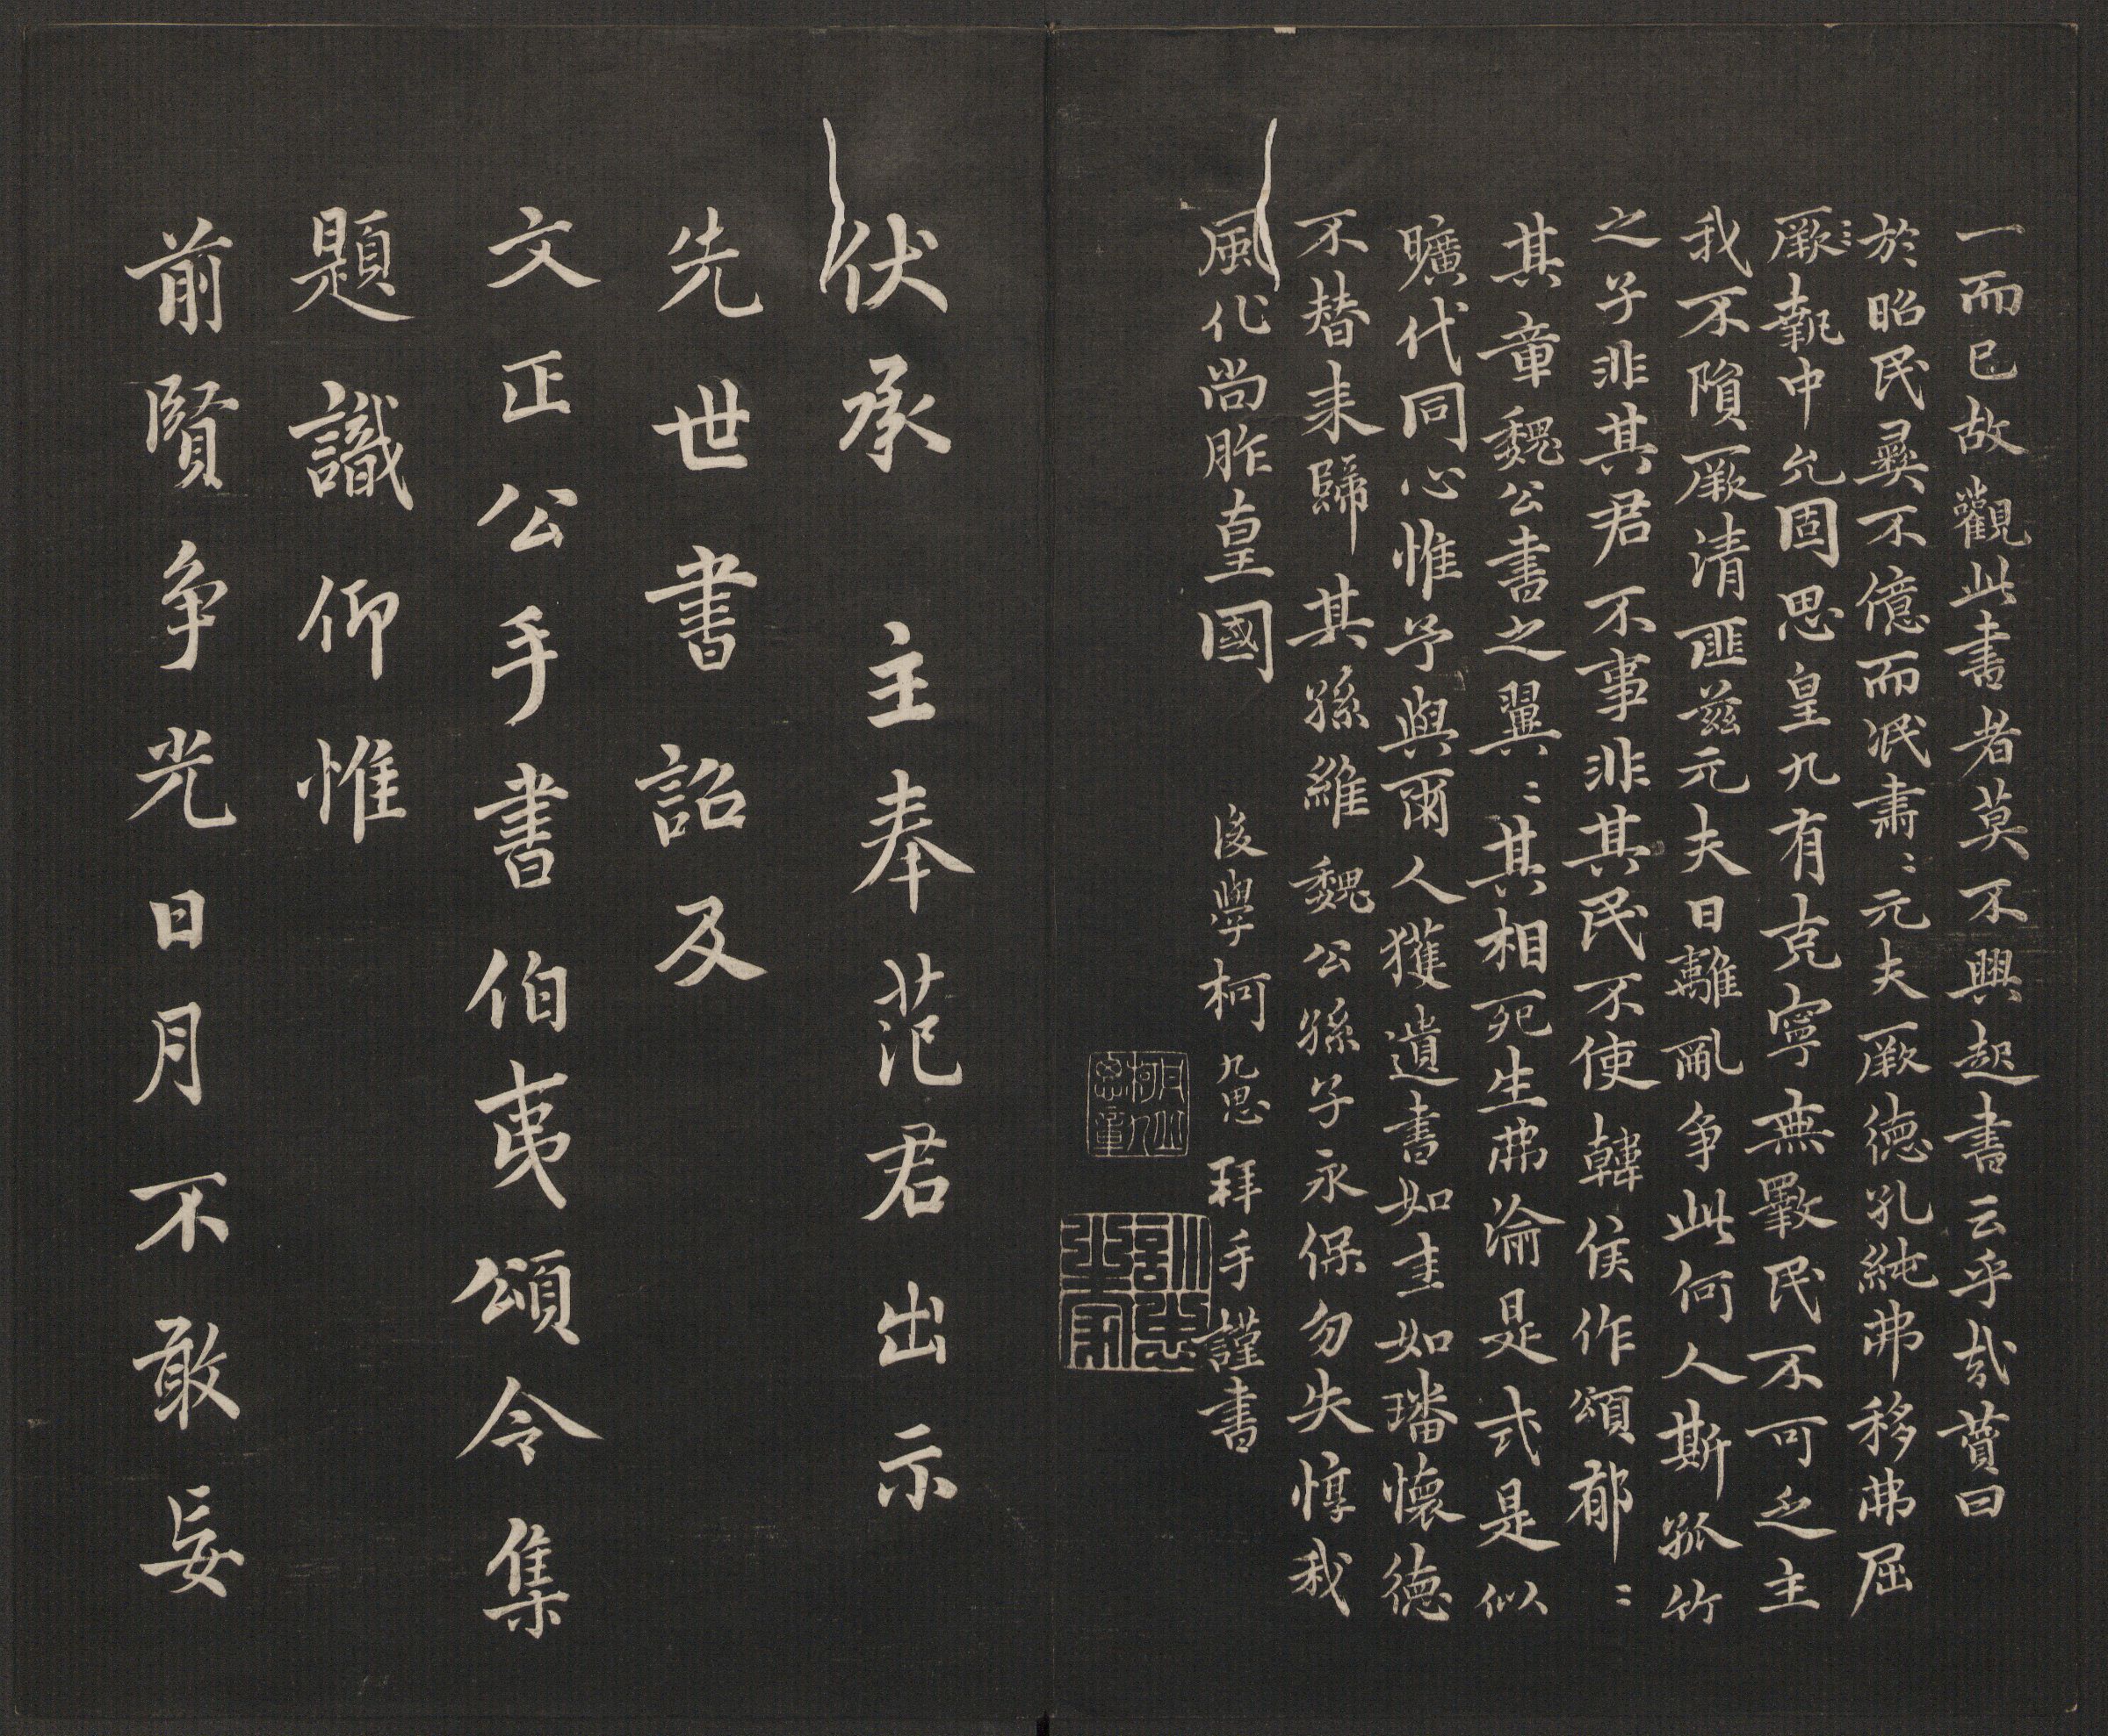 一而已故觀此書者莫不興起書云乎哉贊曰
於昭民彛不億而泯肅〻元夫厥德孔純弗移弗屈
厥執中允固思皇九有克寧無斁民不可乏主
我不隕厥清匪茲元夫日離亂争此何人斯孤竹
之子非其君不事非其民不使韓侯作頌郁〻
其章魏公書之翼〻其相死生弗淪是式是似
曠代同心惟予與爾人獲遺書如圭如璠懷德
不替来歸其孫維魏公孫子永保勿失惇我
風化尚胙皇國
後學柯九思拜手謹書
訓忠之家
伏承主奉范君出示
先世書詔及
文正公手書伯夷頌令集
題識仰惟
前賢争光日月不敢妄